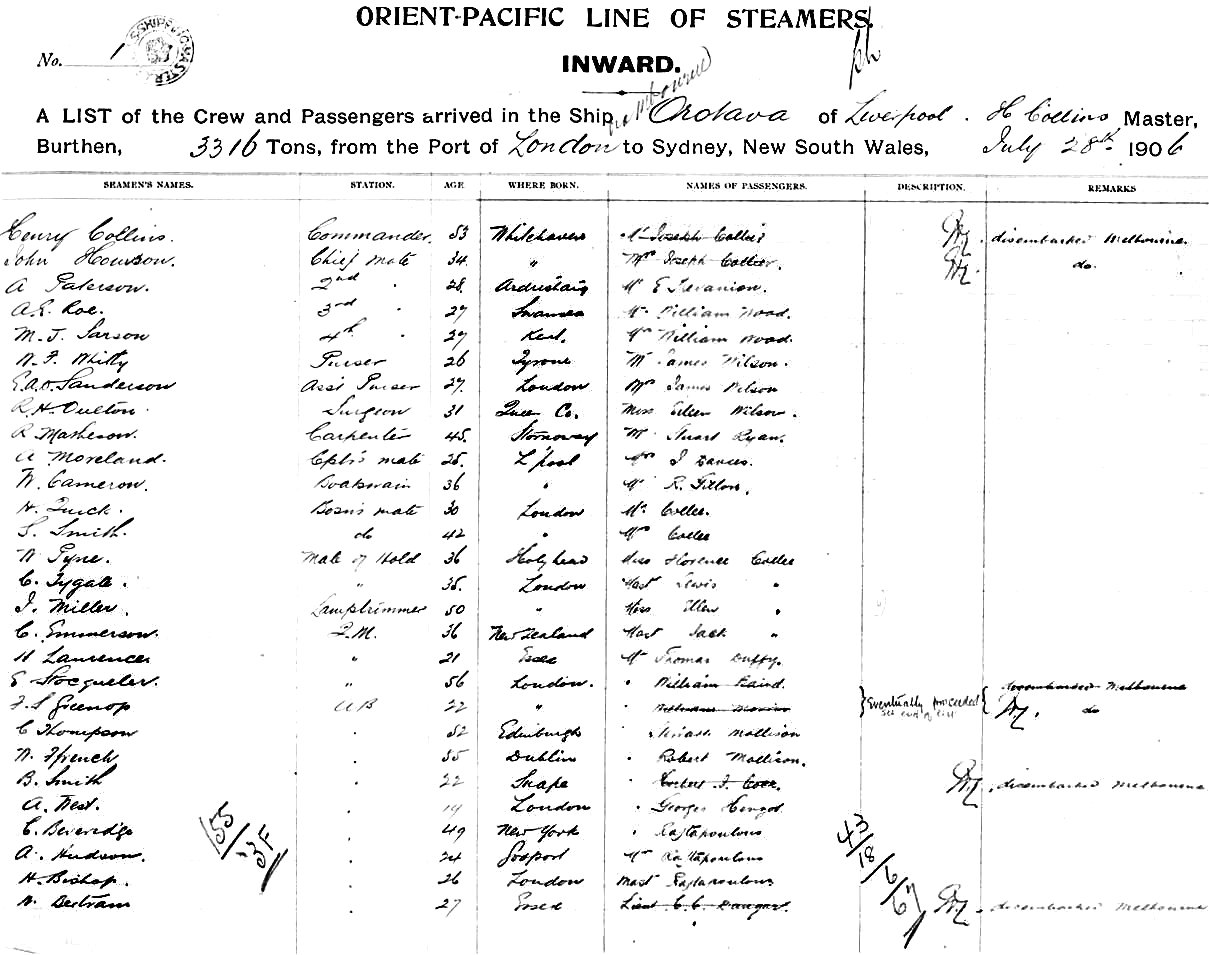 ORIENT-PACIFIC LINE OF STEAMERS.
No. 1
INWARD.
A LIST of the Crew and Passengers arrived in the Ship Orotava of Liverpool. H Collins Master,
Burthen, 3316 Tons, from the Port of London to Sydney, New South Wales, July 28th 1906
SEAMEN'S NAMES. STATION. AGE WHERE BORN. NAMES OF PASSENGERS. DESCRIPTION. REMARKS
Henry Collins. Commander. 53 Whitehaven Mr Joseph Collier disembarked Melbourne
John Howson. Chief Mate 34 " Mrs Joseph Collier. do.
A Paterson. 2nd " 28. Ardrishaig Mr E
A.E. Roe. 3rd " 27 Swansea Mr William Wood.
M. J. Sarson 4th " 27 Kent. Mrs William Wood.
W. F. Whitty Purser 26 Tyrone Mr James Wilson.
E.A.O. Sanderson Asst Purser 27. London Mrs James Wilson
R.H. Oulton. Surgeon 31 Queens Co. Miss Eileen Wilson.
R. Matheson. Carpenter 45. Stornoway Mr Stuart Ryan.
A Moreland. Cptr's mate 25. L'pool Mrs J Davies.
W. Cameron. Boatswain 36 " Mr R.
H. Quick. Bosn's mate 30 London Mr. Collee.
S. Smith. do 42 " Mrs Collee
W. Pyne. Mate of Hold 36 Holyhead Miss Florence Collee
C. Tygate. " 35. London Mast Lewis "
J. Miller. Lamptrimmer 50 " Miss Ellen "
C. Emmerson. Q.M. 36 New Zealand Mast Jack "
H Laurence " 21 Essex Mr Thomas Duffy.
E Stocqueler. " 56 London. " William Baird. disembarked Melbourne
F. S Greenop AB 22 " " Eventually proceeded see end of list do
C Thompson . 52 Edinburgh Mollison
W. Ffrench . 55 Dublin " Robert Mollison.
B. Smith . 22 Snape " Herbert J. Cock. disembarked Melbourne
A. West. . 19 London " George
C. Beveridge . 49 New York " Raftapoulous
A. Hudson. . 24 Gosport Mrs Raftapoulous
H. Bishop. . 26 London Mast Raftapoulous
W. Bertram . 27 Essex Lieut. C. C. disembarked Melbourne
155/3F
43/18/6/67/1